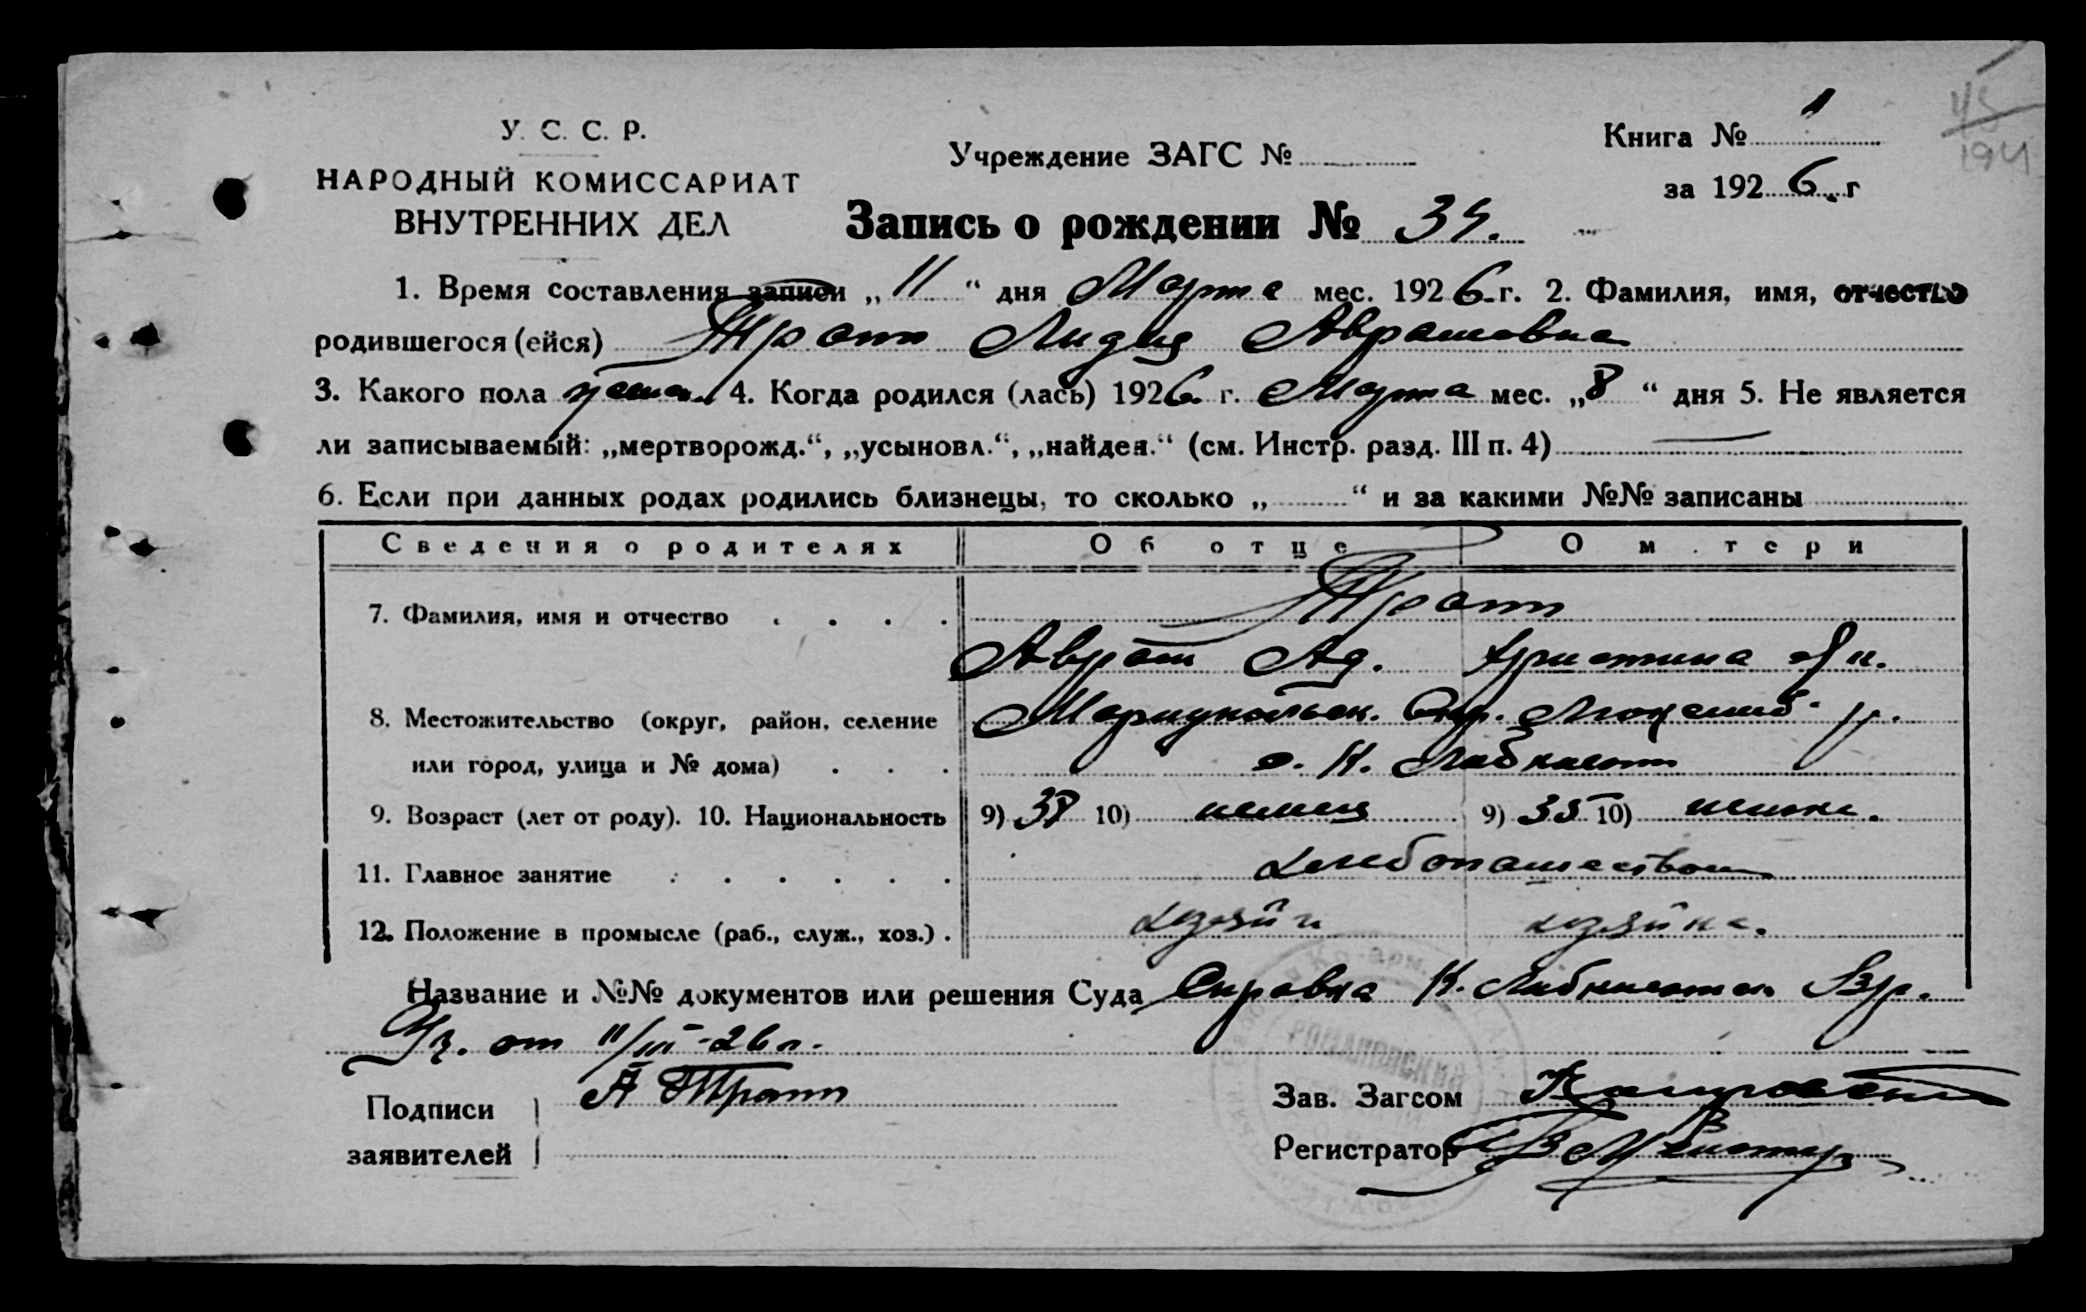 У. С. С. Р.
НАРОДНЫЙ КОМИССАРИАТ
ВНУТРЕННИХ ДЕЛ
Учреждение ЗАГС №
Книга № 1
за 1926 г
45
194
Запись о рождении № 34.
1. Время составления записи „11“ дня Марта мес. 1926 г. 2. Фамилия, имя, отчество
родившегося (ейся) Тротт Лидия Абрамовна
3. Какого пола жен. 4. Когда родился (лась) 1926 г. Марта мес. „8“ дня 5. Не является
ли записываемый: „мертворожд.“, „усыновл.“, „найден.“ (см. Инстр. разд. III п. 4) —
6. Если при данных родах родились близнецы, то сколько „ “ и за какими №№ записаны
Сведения о родителях Об отце О м.тери
7. Фамилия, имя и отчество Тротт
Абрам Ад. Христина Як.
8. Местожительство (округ, район, селение Мариупольск. Окр. р.
или город, улица и № дома) с. К. Либкнехт
9. Возраст (лет от роду). 10. Национальность 9) 38 10) немец 9) 35 10) немка.
11. Главное занятие хлебопашеством
12. Положение в промысле (раб., служ., хоз.) хозяин хозяйка.
Название и №№ документов или решения Суда Справка К. Либкнехтск.
от 11/III-26 г.
Подписи А Тротт
заявителей
Зав. Загсом
Регистратор
РОМАНОВСКИЙ